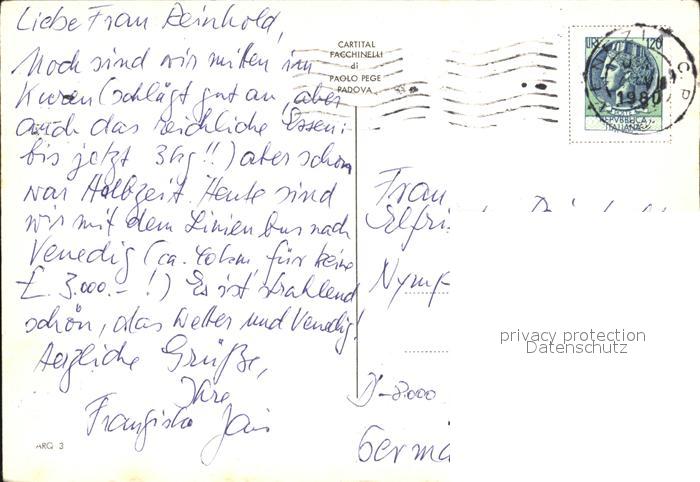 Liebe Frau Reinhold,
Noch sind wir mitten im
Kuren (schlägt gut an, aber
auch das reichliche Essen:
bis jetzt 3kg!!) aber schon
war Halbzeit. Heute sind
wir mit dem Linienbus nach
Venedig (ca. 40km für keine
£. 3.000.- !) Es ist strahlend
schön, das Wetter und Venedig!
Herzliche Grüße,
Ihre
Franziska Jais
ARQ 3
CARTITAL
FACCHINELLI
di
PAOLO PEGE
PADOVA
LIRE 120
REPVBBLICA
ITALIANA
VENEZIA C.P.
1980
Frau
Elfri
Nymp
D-8000
Germa
privacy protection
Datenschutz